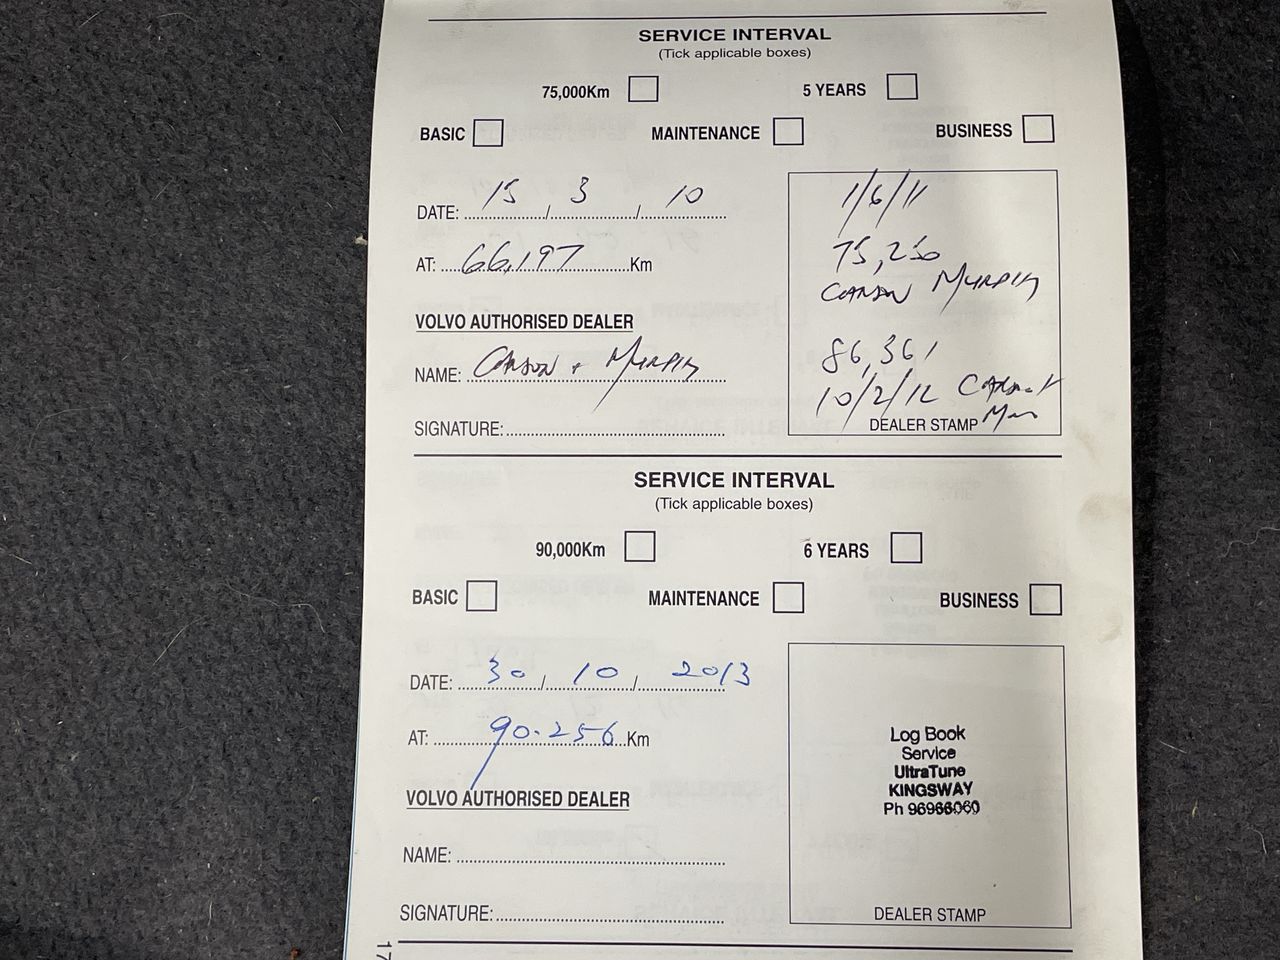 SERVICE INTERVAL
(Tick applicable boxes)
75,000Km 5 YEARS
BASIC MAINTENANCE BUSINESS
DATE: 15 / 3 / 10
AT: 66,197 Km
VOLVO AUTHORISED DEALER
NAME: Carson + Murphy
SIGNATURE:
1/6/11
75,250
Carson Murphy
86,361
10/2/12
DEALER STAMP
SERVICE INTERVAL
(Tick applicable boxes)
90,000Km 6 YEARS
BASIC MAINTENANCE BUSINESS
DATE: 30 / 10 / 2013
AT: 90.256 Km
VOLVO AUTHORISED DEALER
NAME:
SIGNATURE:
Log Book
Service
UltraTune
KINGSWAY
Ph
DEALER STAMP
17